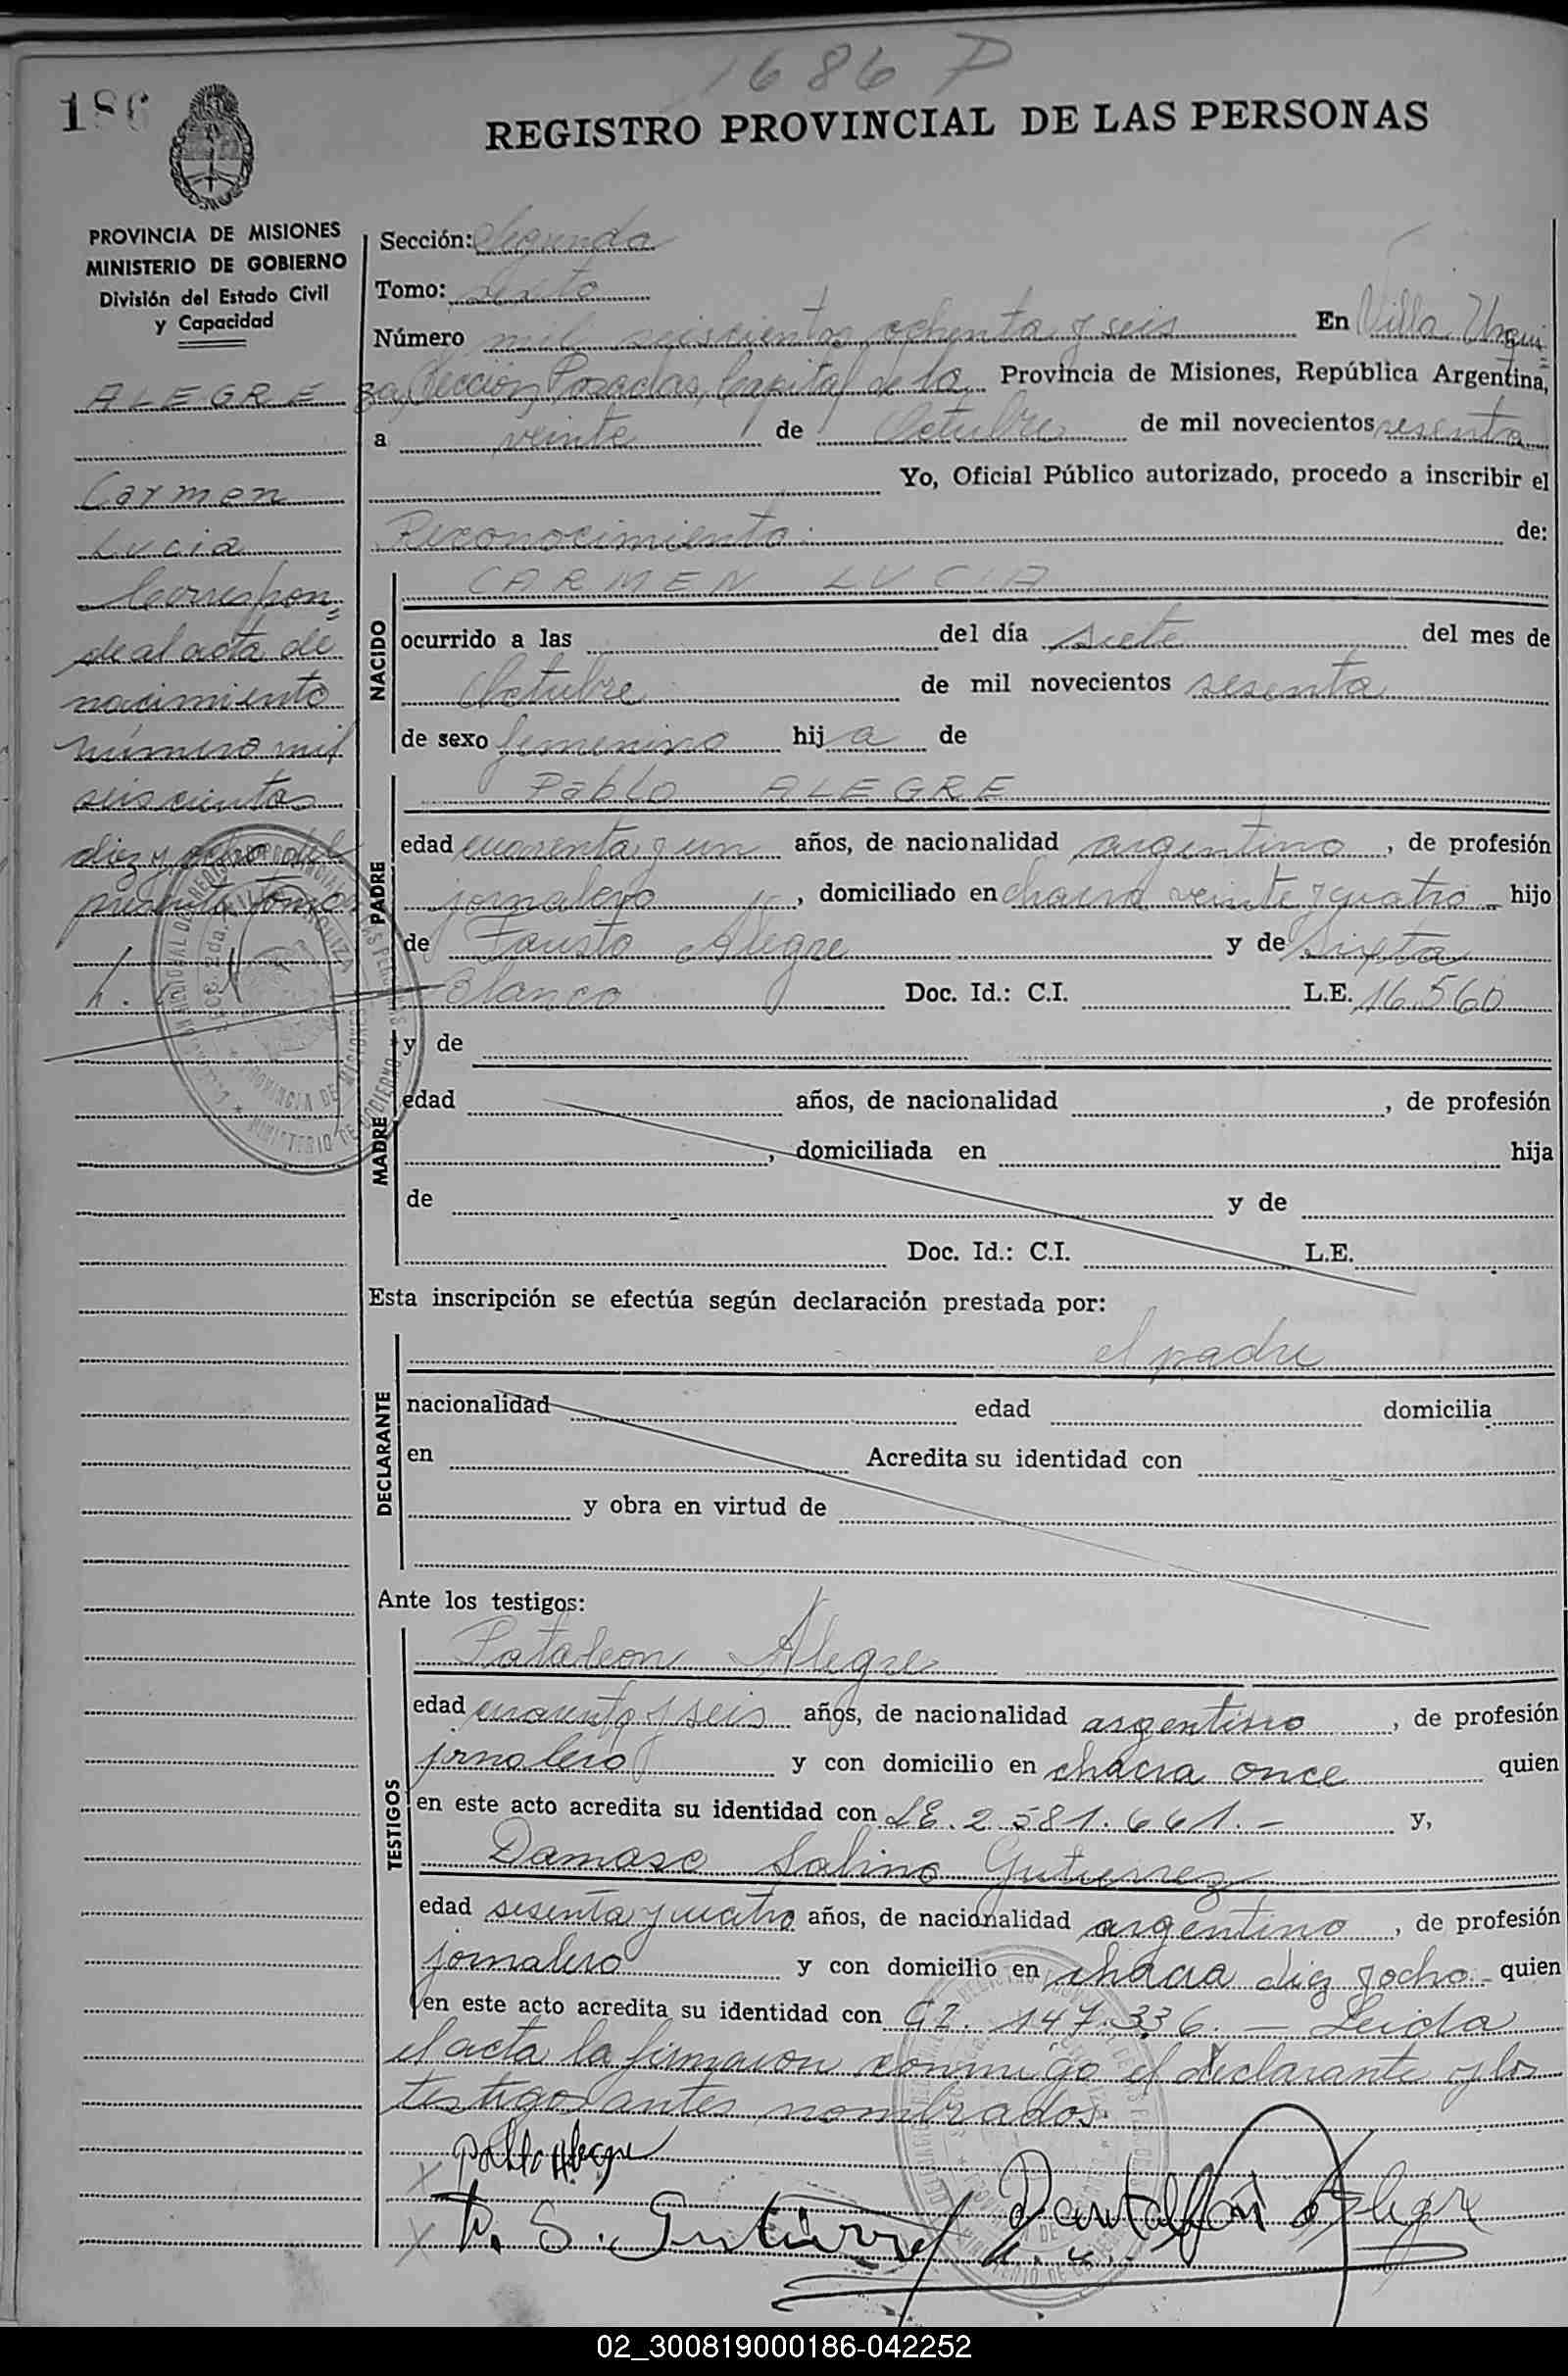 1686 P
186
REGISTRO PROVINCIAL DE LAS PERSONAS
PROVINCIA DE MISIONES
MINISTERIO DE GOBIERNO
División del Estado Civil
y Capacidad
ALEGRE
Carmen
Lucia
Correspon=
de al acta de
nacimiento
número mil
seiscientos
diez y ocho del
presente tomo
Sección: Segunda
Tomo: sexto
Número mil seiscientos ochenta y seis En Villa Urqui-
za, Sección Posadas, Capital de la Provincia de Misiones, República Argentina,
a veinte de Octubre de mil novecientos sesenta
Yo, Oficial Público autorizado, procedo a inscribir el
Reconocimiento de:
NACIDO
CARMEN LUCIA
ocurrido a las del día siete del mes de
Octubre de mil novecientos sesenta
de sexo femenino hija de
PADRE
Pablo ALEGRE
edad cuarenta y un años, de nacionalidad argentino, de profesión
jornalero, domiciliado en chacra veinte y cuatro hijo
de Fausto Alegre y de Sixta
Blanco Doc. Id.: C.I. L.E. 16.560
MADRE
y de
edad años, de nacionalidad , de profesión
, domiciliada en hija
de y de
Doc. Id.: C.I. L.E.
Esta inscripción se efectúa según declaración prestada por:
DECLARANTE
el padre
nacionalidad edad domicilia
en Acredita su identidad con
y obra en virtud de
Ante los testigos:
TESTIGOS
Pataleon Alegre
edad cuarenta y seis años, de nacionalidad argentino, de profesión
jrnalero y con domicilio en chacra once quien
en este acto acredita su identidad con LE. 2.581.661.- y,
Damaso Sabino Gutierrez
edad sesenta y cuatro años, de nacionalidad argentino, de profesión
jornalero y con domicilio en chacra diez y ocho - quien
en este acto acredita su identidad con CI. 147.336. — Leida
el acta la firmaron conmigo el declarante y los
testigos antes nombrados.
Pablo Alegre
D. S. Gutierrez Pantaleón Alegre
02_300819000186-042252